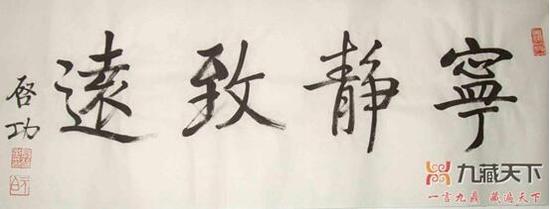 寧靜致遠
启功
九藏天下
一言九鼎 藏遍天下